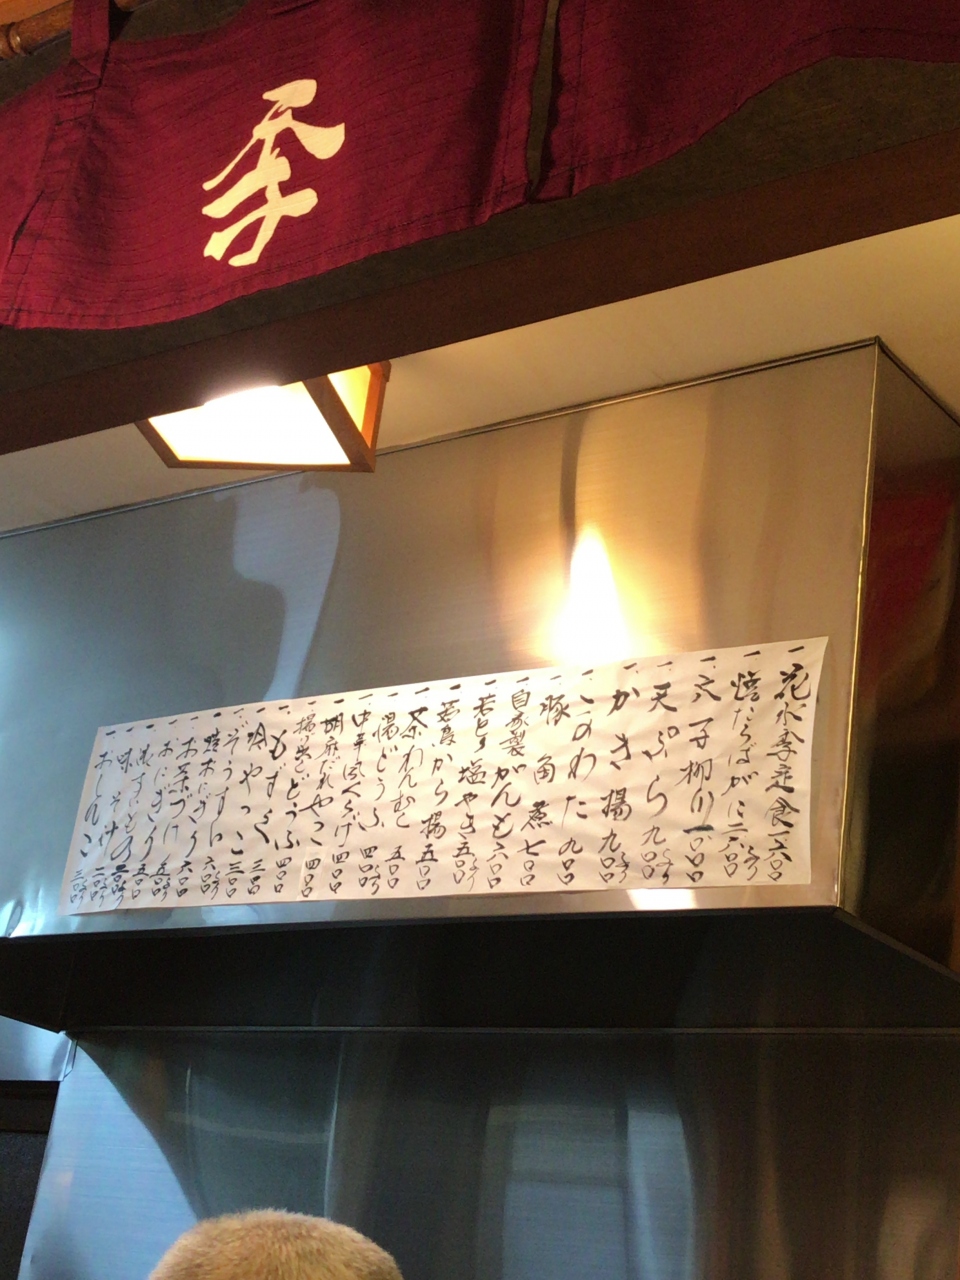 季
一 花水季定食 一六〇〇
一 焼たらばがに 二六〇〇
一 穴子柳川 一一〇〇
一 天ぷら 九〇〇より
一 かき揚 九〇〇より
一 このわた 九〇〇
一 豚角煮 七〇〇
一 自家製がんも 六〇〇
一 若どり塩やき 五〇〇より
一 若鳥から揚 五〇〇
一 茶わんむし 五〇〇
一 湯どうふ 四〇〇より
一 中華風くらげ 四〇〇
一 胡麻だれやっこ 四〇〇
一 揚げ出しどうふ 四〇〇
一 もずく 三〇〇
一 冷やっこ 三〇〇
一 ぞうすい 六〇〇より
一 焼おにぎり 六〇〇
一 お茶づけ 五〇〇より
一 おにぎり 五〇〇
一 吸すいもの 二〇〇より
一 味そ汁 二〇〇より
一 おしんこ 三〇〇